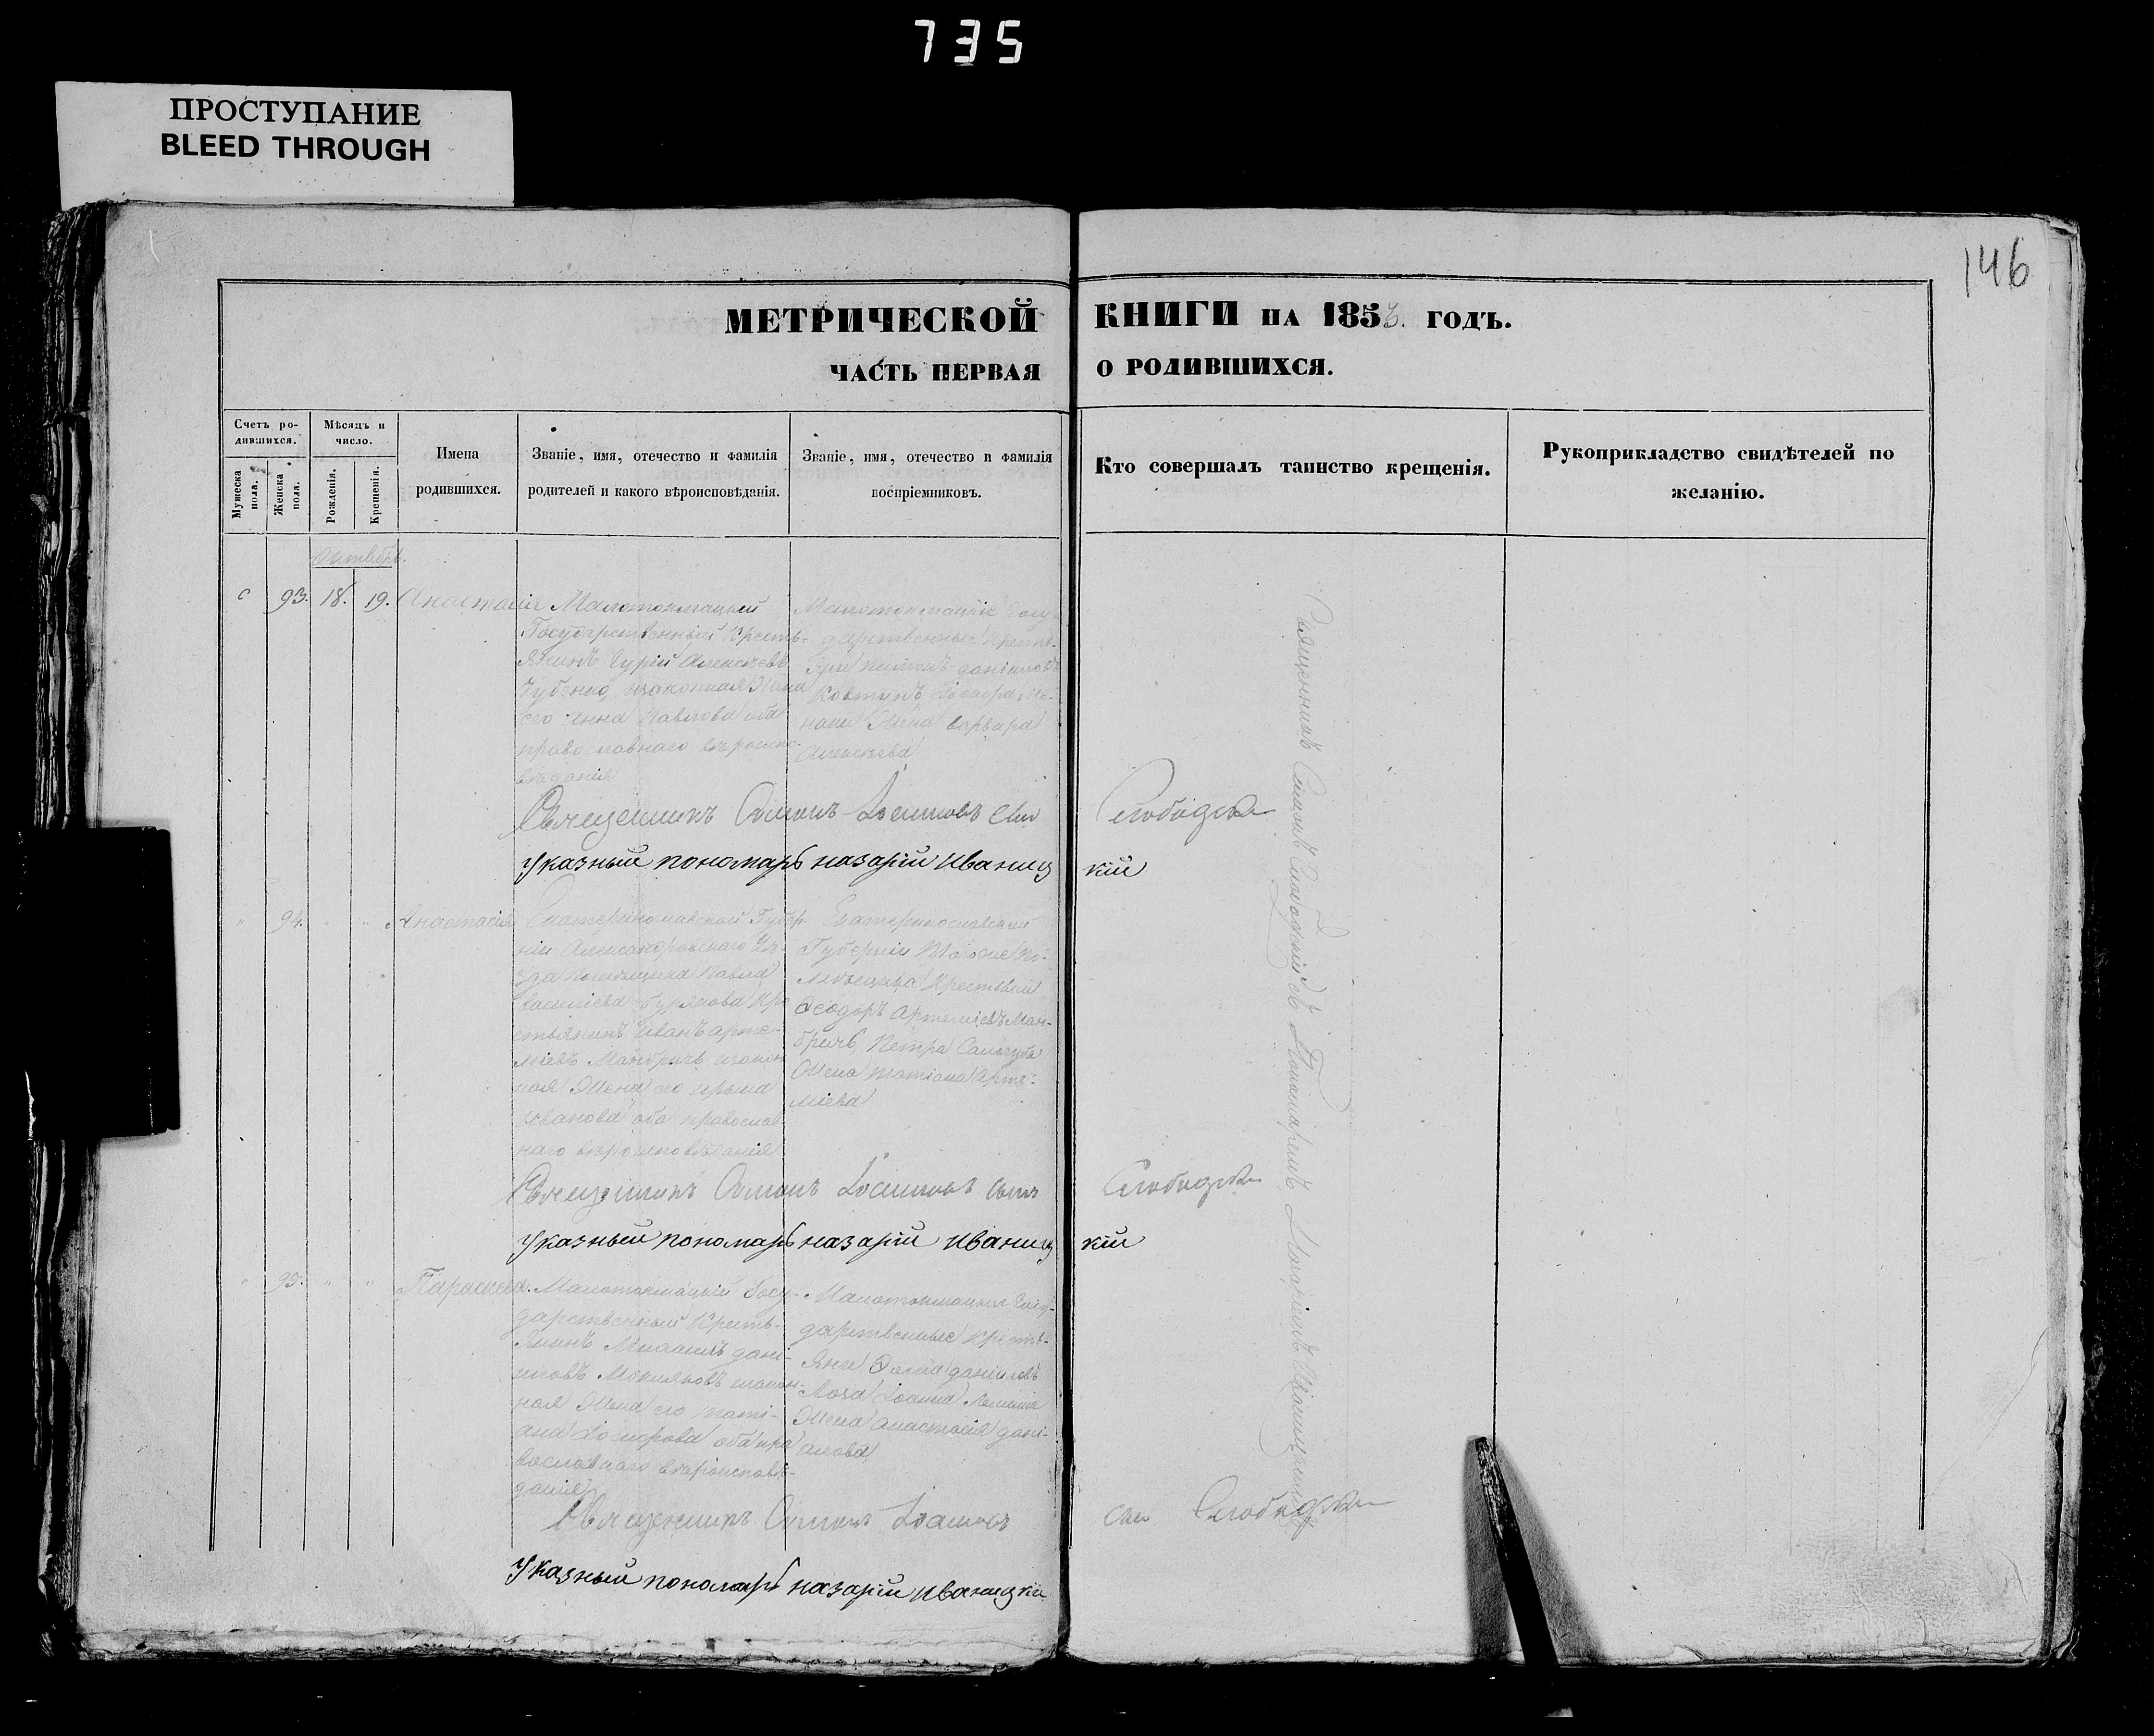 735
ПРОСТУПАНИЕ
BLEED THROUGH
146
МЕТРИЧЕСКОЙ КНИГИ НА 1853. ГОДЪ.
ЧАСТЬ ПЕРВАЯ О РОДИВШИХСЯ.
Счетъ родившихся.
Мужеска пола.
Женска пола.
Мѣсяцъ и число.
Рожденія.
Крещенія.
Имена родившихся.
Званіе, имя, отечество и фамилія
родителей и какого вѣроисповѣданія.
Званіе, имя, отечество и фамилія
воспріемниковъ.
Кто совершалъ таинство крещенія.
Рукоприкладство свидѣтелей по
желанію.
Октябрь.
93. 18. 19. Анастасія
Малотокмацкий
Государственный Кресть-
янинъ Гурій Алексѣевъ
Зубенко, изаконная Жена
его Анна Павлова оба
православнаго вѣроиспо-
вѣданія
Малотокмацкіе Госу-
дарственные Кресть-
яне данііловъ
Ковтунъ
Жена варвара
Алексѣева
Священникъ Симонъ Іоанновъ Слободскій
Указный пономарь назарій иваницкій
94. Анастасія
Екатеринославской Губер-
ніи Александровскаго Уѣ-
зда Помѣщика Павла
василіева Бурякова Кре
стьянинъ Иванъ арте-
міевъ Мандричь изакон
ная Жена его
иванова оба православ-
наго вѣроисповѣданія
Екатеринославской
Губерніи Тогоже по-
мѣщика Крестьяне
Ѳеодоръ Артеміевъ Ман-
дричь Петра
Жена татіана Арте-
міева
Священникъ Симонъ Іоанновъ сынъ Слободскій
Указный пономарь назарій иваницкій
95. Параскева.
Малотокмацкій Госу-
дарственный Кресть-
янинъ Михаилъ дані-
иловъ изакон-
ная Жена его тати-
ана оба пра
вославнаго вѣроисповѣ-
данія
Малотокмацкія Госу-
дарственные Кресть-
яне Ѳома даніиловъ
Лоза Іоанна
Жена анастасія дані-
илова
Священникъ Симонъ Іоанновъ Слободскій
Указный пономарь назарій иваницкій
Священникъ Симонъ Слободскій съ Пономаремъ Назаріемъ Иваницкимъ